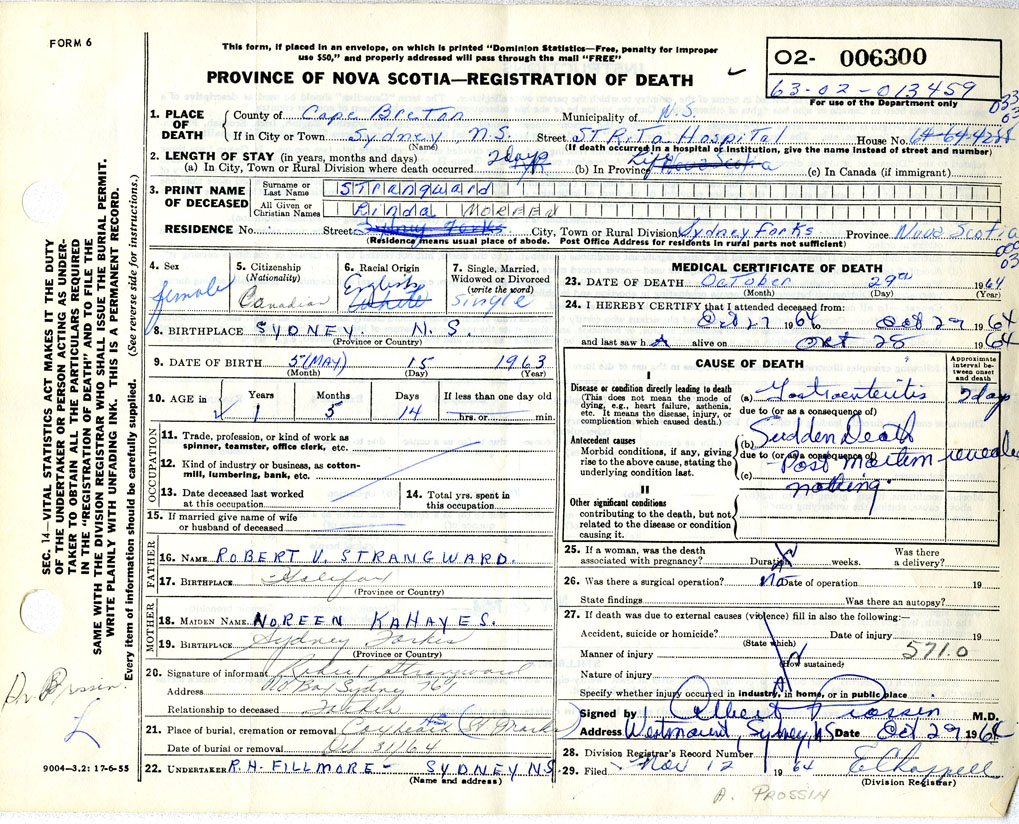 FORM 6
This form, if placed in an envelope, on which is printed "Dominion Statistics—Free, penalty for improper
use $50," and properly addressed will pass through the mail "FREE"
PROVINCE OF NOVA SCOTIA—REGISTRATION OF DEATH
02- 006300
63-02-013459
For use of the Department only
1. PLACE OF DEATH
County of Cape Breton Municipality of N.S.
If in City or Town Sydney N.S. Street ST. Rita Hospital House No.
(Name) (If death occurred in a hospital or institution, give the name instead of street and number)
2. LENGTH OF STAY (in years, months and days)
(a) In City, Town or Rural Division where death occurred 2 days (b) In Province Life Nova Scotia (c) In Canada (if immigrant)
3. PRINT NAME OF DECEASED
Surname or Last Name Strangward
All Given or Christian Names Linda MOREEN
RESIDENCE No. Street Sydney Forks City, Town or Rural Division Sydney Forks Province Nova Scotia
(Residence means usual place of abode. Post Office Address for residents in rural parts not sufficient)
4. Sex female
5. Citizenship (Nationality) Canadian
6. Racial Origin English White
7. Single, Married, Widowed or Divorced (write the word) Single
8. BIRTHPLACE SYDNEY. N.S.
(Province or Country)
9. DATE OF BIRTH 5 (MAY) 15 1963
(Month) (Day) (Year)
10. AGE in Years 1 Months 5 Days 14 If less than one day old hrs. or min.
OCCUPATION
11. Trade, profession, or kind of work as spinner, teamster, office clerk, etc.
12. Kind of industry or business, as cotton-mill, lumbering, bank, etc.
13. Date deceased last worked at this occupation
14. Total yrs. spent in this occupation
15. If married give name of wife or husband of deceased
FATHER
16. NAME ROBERT V. STRANGWARD.
17. BIRTHPLACE Halifax
(Province or Country)
MOTHER
18. MAIDEN NAME NOREEN KAHAYES.
19. BIRTHPLACE Sydney Forks
(Province or Country)
20. Signature of informant Robert Strangward
Address P.O. Box Sydney 761
Relationship to deceased Father
21. Place of burial, cremation or removal Coxheath (St Marks)
Date of burial or removal Oct 31/64
22. UNDERTAKER R.H. FILLMORE - SYDNEY N.S.
(Name and address)
MEDICAL CERTIFICATE OF DEATH
23. DATE OF DEATH October 29th 1964
(Month) (Day) (Year)
24. I HEREBY CERTIFY that I attended deceased from
Oct 27 1964 to Oct 29 1964
and last saw h alive on Oct 28 1964
CAUSE OF DEATH
Approximate interval between onset and death
I
Disease or condition directly leading to death
(This does not mean the mode of dying, e.g., heart failure, asthenia, etc. It means the disease, injury, or complication which caused death.)
(a) Gastroenteritis 2 days
due to (or as a consequence of)
Antecedent causes
Morbid conditions, if any, giving rise to the above cause, stating the underlying condition last.
(b) Sudden Death
due to (or as a consequence of)
Post mortem reveals
(c) nothing.
II
Other significant conditions
contributing to the death, but not related to the disease or condition causing it.
25. If a woman, was the death associated with pregnancy? Duration weeks. Was there a delivery?
26. Was there a surgical operation? No Date of operation 19
State findings Was there an autopsy?
27. If death was due to external causes (violence) fill in also the following:—
Accident, suicide or homicide? Date of injury 19
(State which)
Manner of injury 571.0
(How sustained)
Nature of injury
Specify whether injury occurred in industry, in home, or in public place
Signed by Albert Prossin M.D.
Address Westmount, Sydney, NS Date Oct 29 1964
28. Division Registrar's Record Number
29. Filed Nov 12 1964 E Chappell
(Division Registrar)
A. PROSSIN
SEC. 14—VITAL STATISTICS ACT MAKES IT THE DUTY
OF THE UNDERTAKER OR PERSON ACTING AS UNDER-
TAKER TO OBTAIN ALL THE PARTICULARS REQUIRED
IN THE "REGISTRATION OF DEATH" AND TO FILE THE
SAME WITH THE DIVISION REGISTRAR WHO SHALL ISSUE THE BURIAL PERMIT.
WRITE PLAINLY WITH UNFADING INK. THIS IS A PERMANENT RECORD.
Every item of information should be carefully supplied. (See reverse side for instructions.)
Dr. Prossin.
9004—3.2: 17-6-55